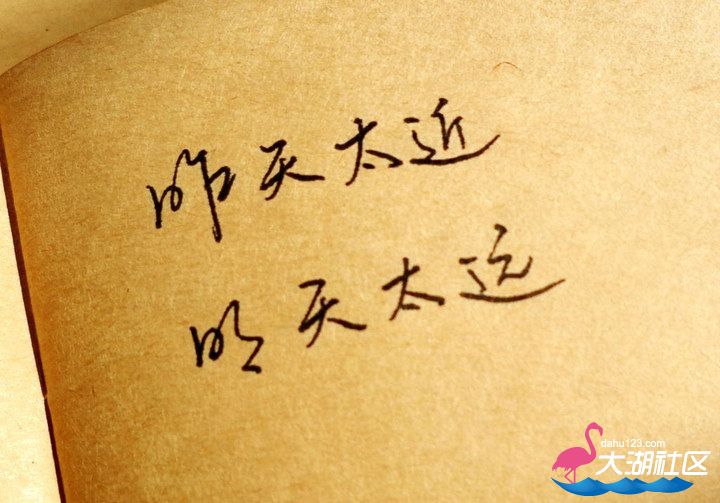 昨天太近
明天太远
dahu123.com
大湖社区